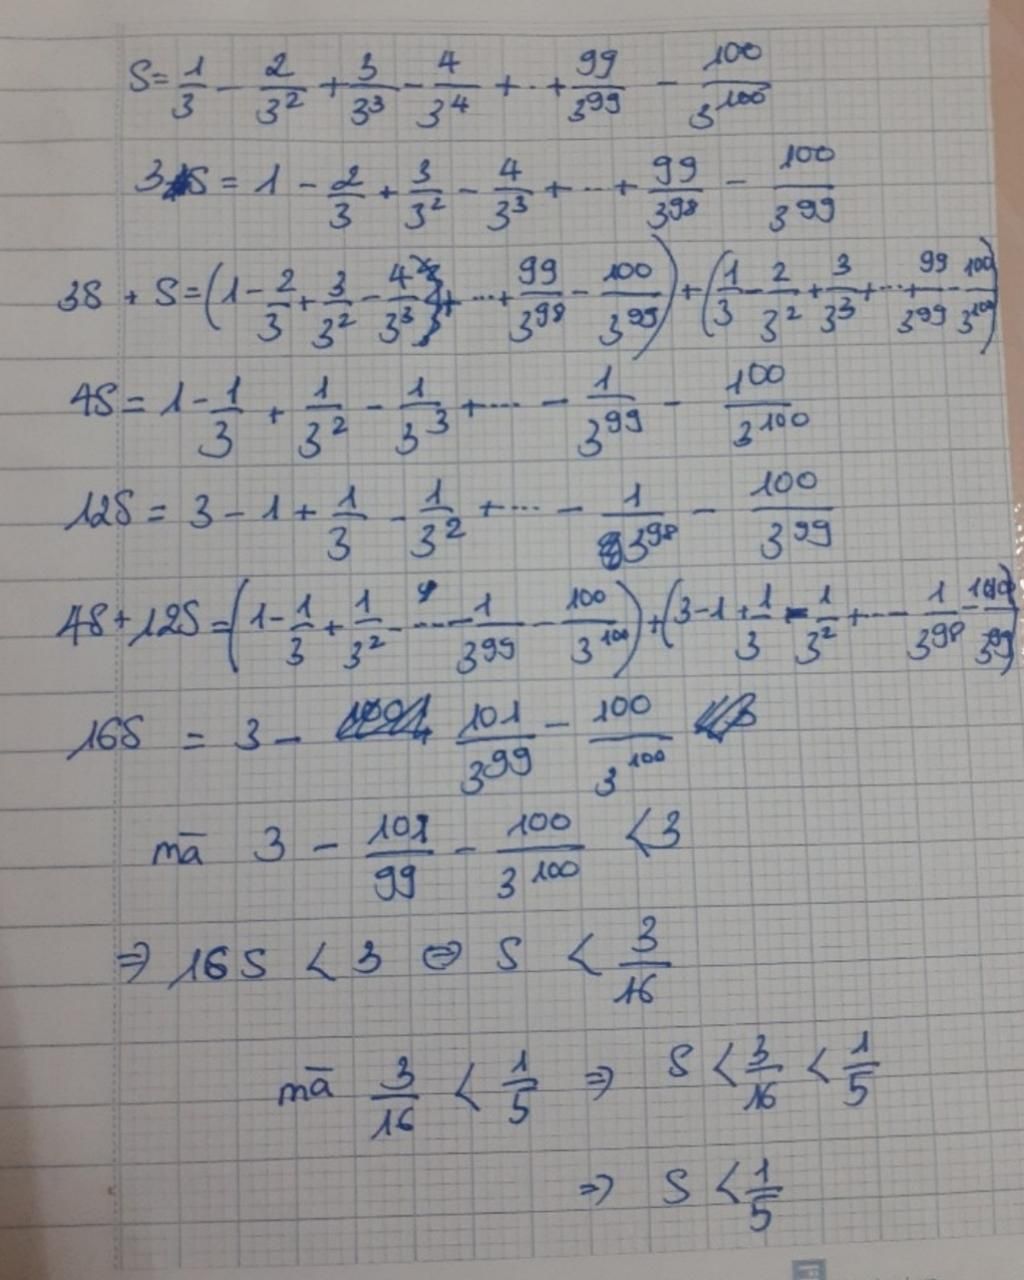 S = 1/3 - 2/3² + 3/3³ - 4/3⁴ + .. + 99/3⁹⁹ - 100/3¹⁰⁰
3S = 1 - 2/3 + 3/3² - 4/3³ + ... + 99/3⁹⁸ - 100/3⁹⁹
3S + S = (1 - 2/3 + 3/3² - 4/3³ + ... + 99/3⁹⁸ - 100/3⁹⁹) + (1/3 - 2/3² + 3/3³ + ... + 99/3⁹⁹ - 100/3¹⁰⁰)
4S = 1 - 1/3 + 1/3² - 1/3³ + .... - 1/3⁹⁹ - 100/3¹⁰⁰
12S = 3 - 1 + 1/3 - 1/3² + .... - 1/3⁹⁸ - 100/3⁹⁹
4S + 12S = (1 - 1/3 + 1/3² - .... - 1/3⁹⁹ - 100/3¹⁰⁰) + (3 - 1 + 1/3 - 1/3² + ... - 1/3⁹⁸ - 100/3⁹⁹)
16S = 3 - 101/3⁹⁹ - 100/3¹⁰⁰
mà 3 - 101/99 - 100/3¹⁰⁰ < 3
⇒ 16S < 3 ⇔ S < 3/16
mà 3/16 < 1/5 ⇒ S < 3/16 < 1/5
⇒ S < 1/5